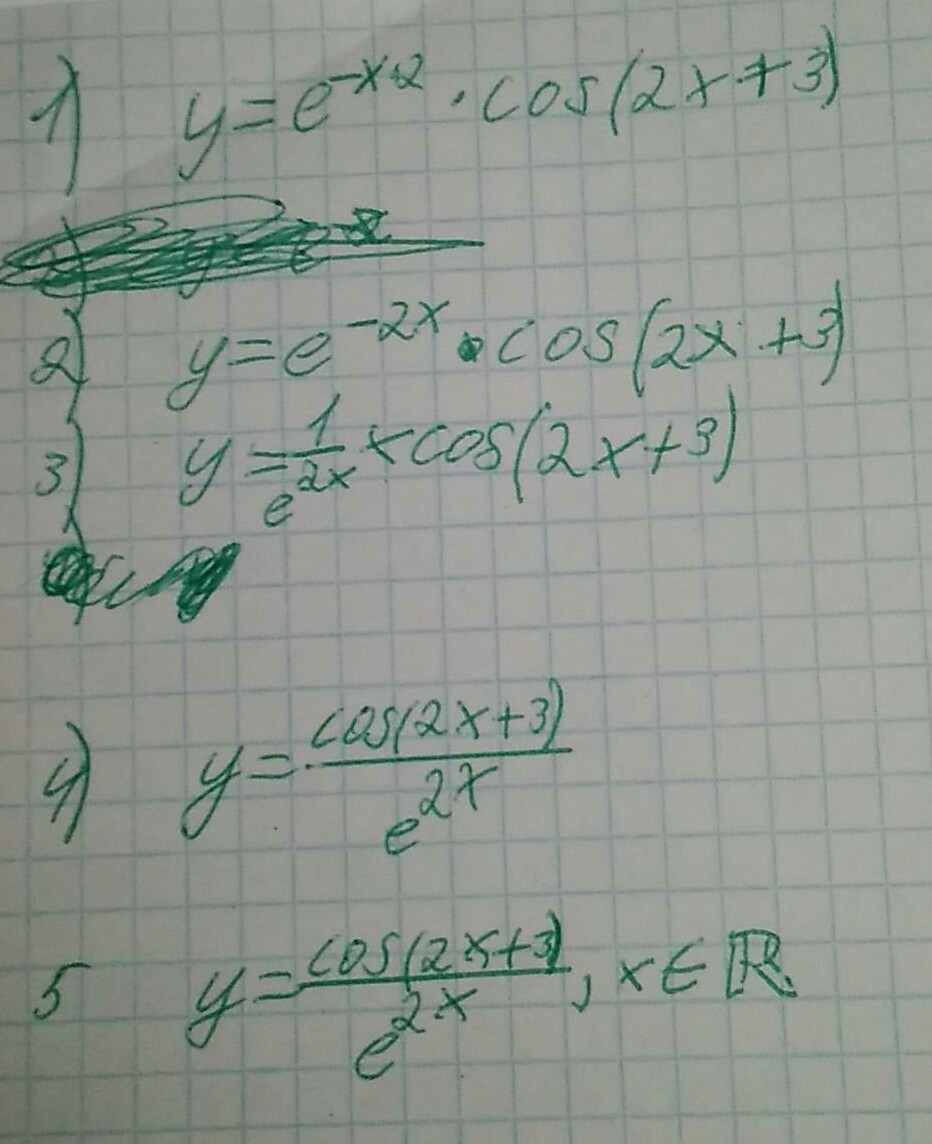 1) y=e^{-x·2} · cos(2x+3)
2) y=e^{-2x} · cos(2x+3)
3) y=\frac{1}{e^{2x}}×cos(2x+3)
4) y=\frac{cos(2x+3)}{e^{2x}}
5 y=\frac{cos(2x+3)}{e^{2x}}, x∈ℝ